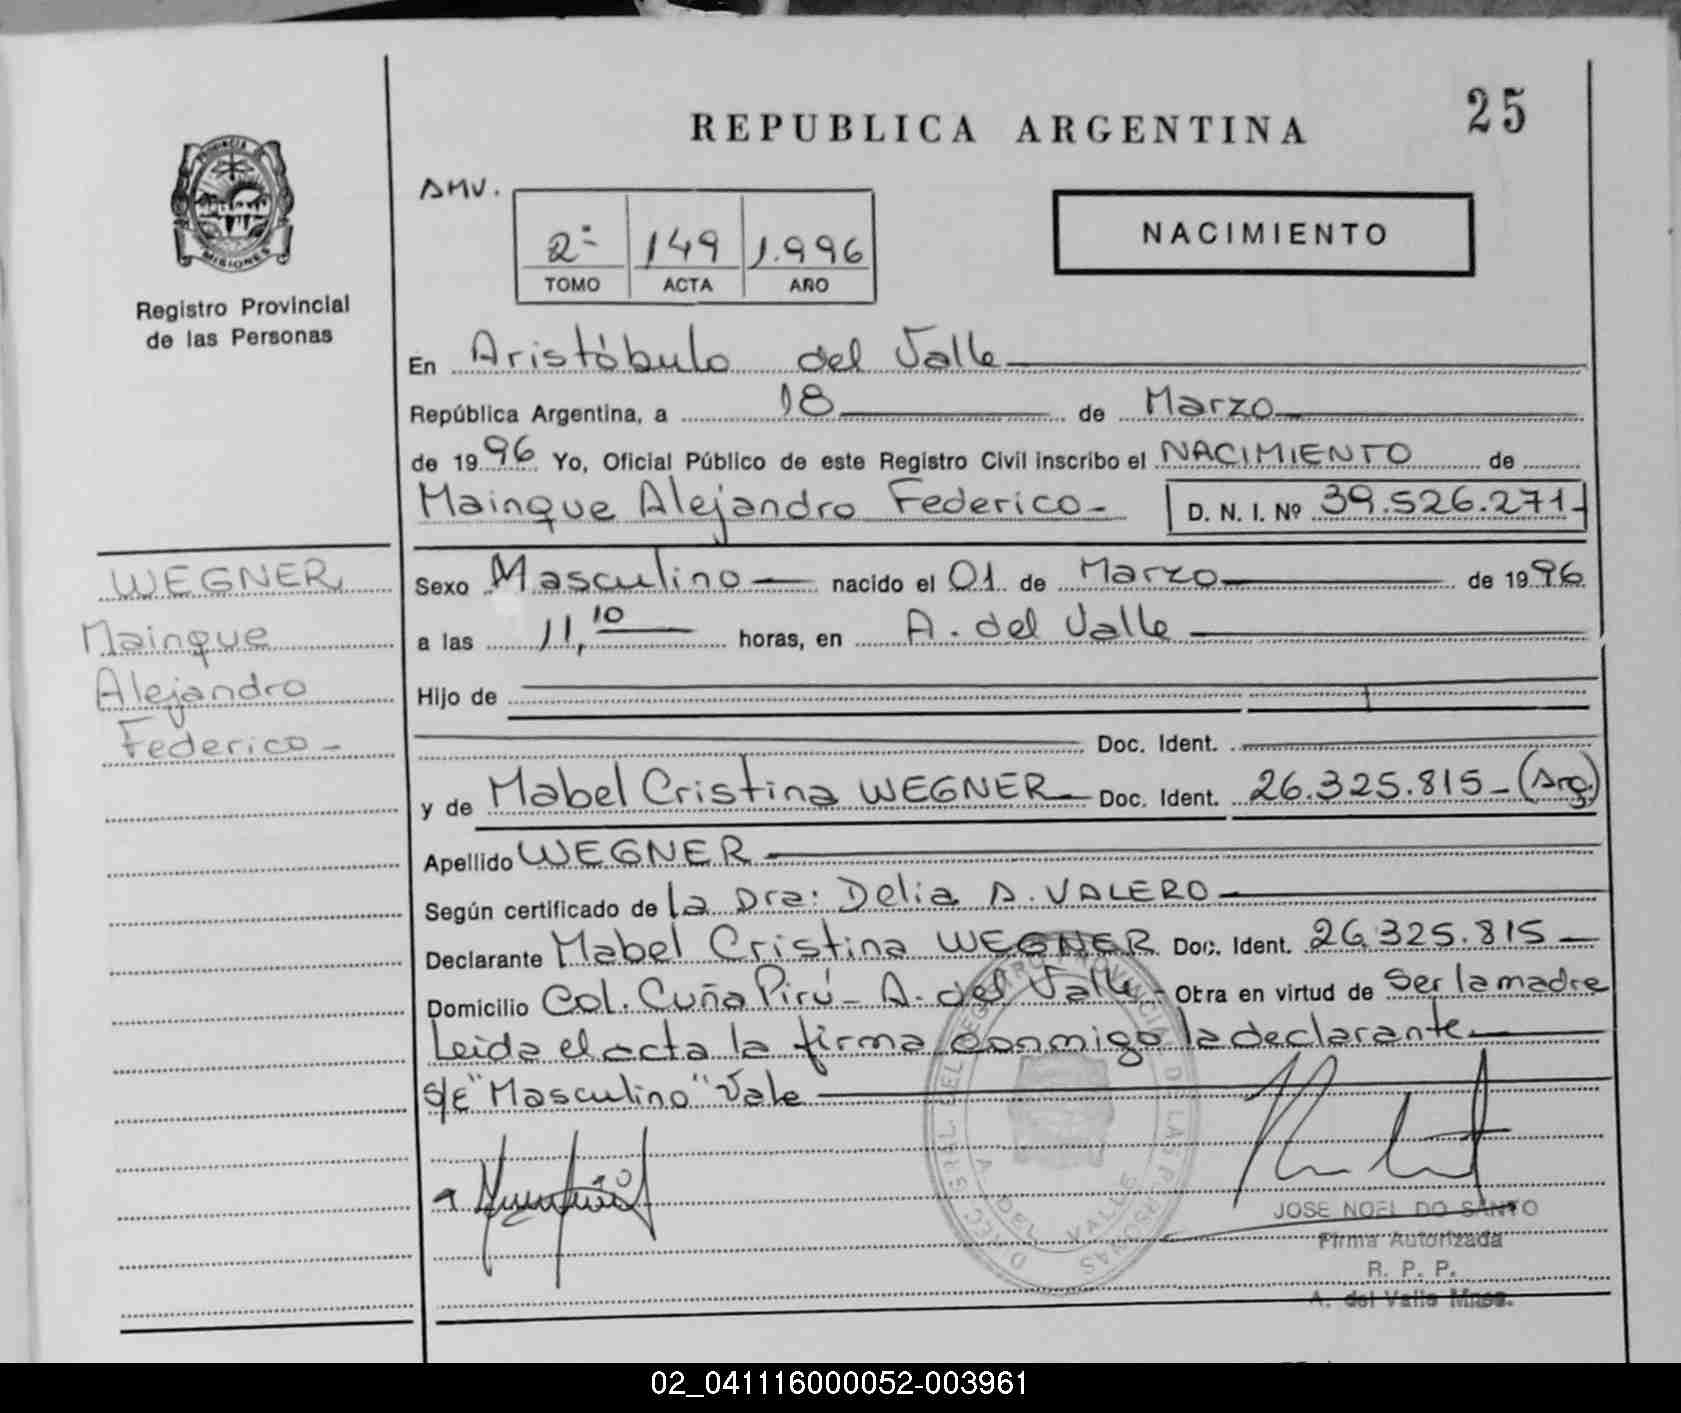 25
REPUBLICA ARGENTINA
AMV.
2º 149 1.996
TOMO ACTA AÑO
NACIMIENTO
PROVINCIA DE MISIONES
Registro Provincial
de las Personas
En Aristóbulo del Valle
República Argentina, a 18 de Marzo
de 1996 Yo, Oficial Público de este Registro Civil inscribo el NACIMIENTO de
Mainque Alejandro Federico- D. N. I. Nº 39.526.271-
WEGNER
Mainque
Alejandro
Federico -
Sexo Masculino nacido el 01 de Marzo de 1996
a las 11,10 horas, en A. del Valle
Hijo de
Doc. Ident.
y de Mabel Cristina WEGNER Doc. Ident. 26.325.815-(Arg.)
Apellido WEGNER
Según certificado de la Dra: Delia A. VALERO
Declarante Mabel Cristina WEGNER Doc. Ident. 26.325.815
Domicilio Col. Cuña Pirú- A. del Valle- Otra en virtud de Ser la madre
Leida el acta la firma conmigo la declarante
S/E "Masculino" Vale
A. DEL VALLE
JOSE NOEL DO SANTO
Firma Autorizada
R. P. P.
A. del Valle Mnes.
02_041116000052-003961